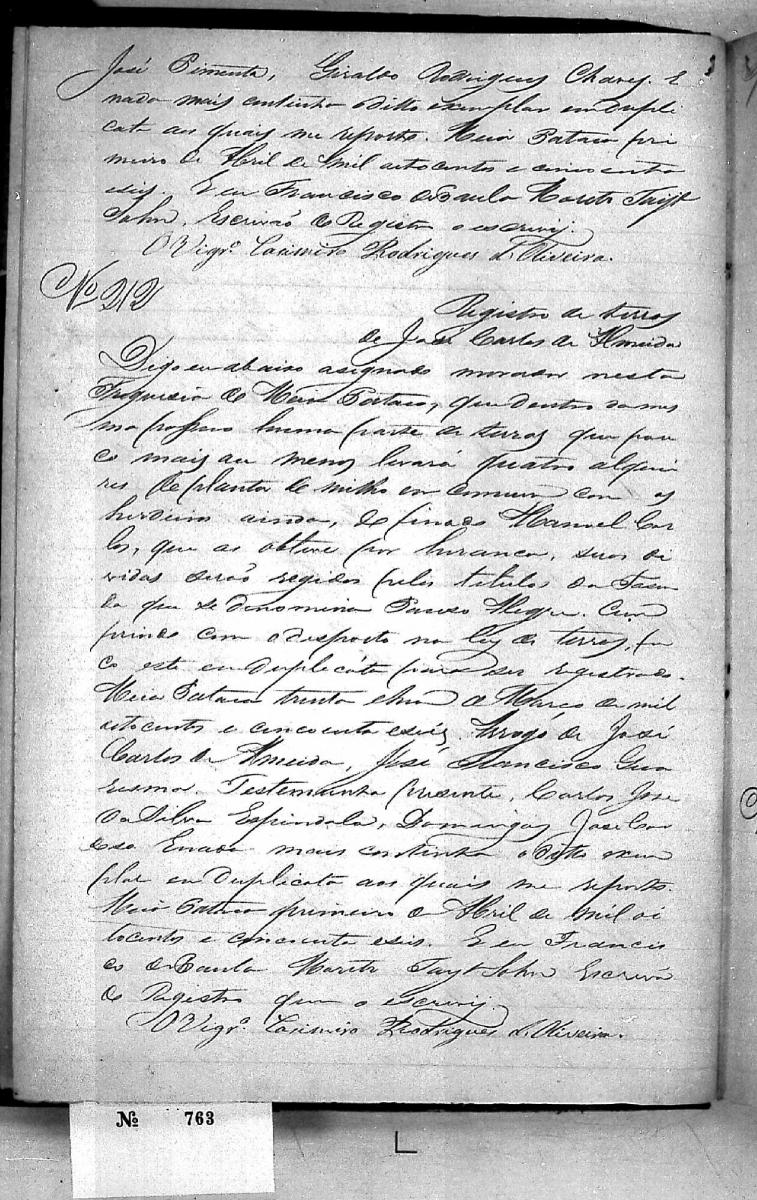 José Pimenta, Giraldo Rodrigues Chaves. E
nada mais continha o ditto exemplar em dupli
cata aos quais me reporto. Meia Pataca pri
meiro de Abril de mil oitocentos e cincoenta
eseis. E eu Francisco de Paula
John, Escrivaõ do Registro o escrevy.
O Vigrº Casimiro Rodrigues d'Oliveira.
Nº 212
Registro de terras
de José Carlos de Almeida
Digo eu abaixo asignado morador nesta
Freguesia de Meia Pataca, que dentro da mes
ma possuo huma parte de terras que pou
co mais au menos levará quatro alquei
res de planta de milho em comum com os
herdeiros ainda, do finado Manoel Car
los, que as obtive por herança, suas di
vidas seraõ regidas pelos titulos da Fasen
da que se denomina Pauso Alegre. Cum
prindo com o disposto na ley de terras, fa
co este em duplicáta para ser registrado.
Meia Pataca trinta ehum de Março de mil
oitocentos e cincoenta eseis. Arrogo de José
Carlos de Almeida, José Francisco Gua
resma. Testemunha presente, Carlos José
da Silva Espindola, Domingos José Car
doso Enada mais continha o ditto exem
plar em duplicata aos quais me reporto.
Meia Pataca primeiro de Abril de mil oi
tocentos e cincoenta eseis. E eu Francis
co de Paula John Escrivaõ
do Registro que o escrevy.
O Vigrº Casimiro Rodrigues d'Oliveira.
№ 763